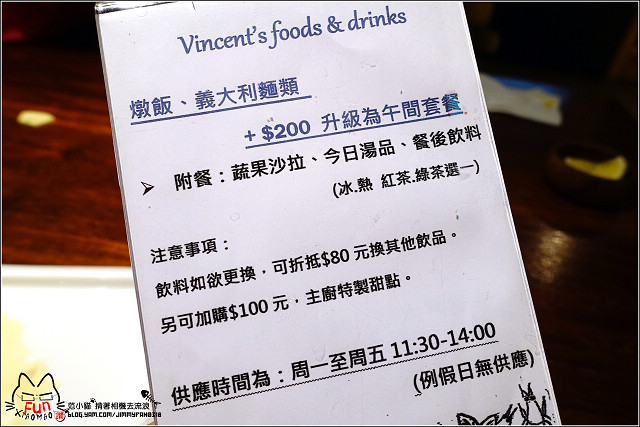 Vincent's foods & drinks
燉飯、義大利麵類
+ $200 升級為午間套餐
➢ 附餐：蔬果沙拉、今日湯品、餐後飲料
(冰.熱 紅茶.綠茶選一)
注意事項：
飲料如欲更換，可折抵$80 元換其他飲品。
另可加購$100 元，主廚特製甜點。
供應時間為：周一至周五 11:30-14:00
(例假日無供應)
Fun
范小貓 揹著相機去流浪
blog.yam.com/jimmyfan0218